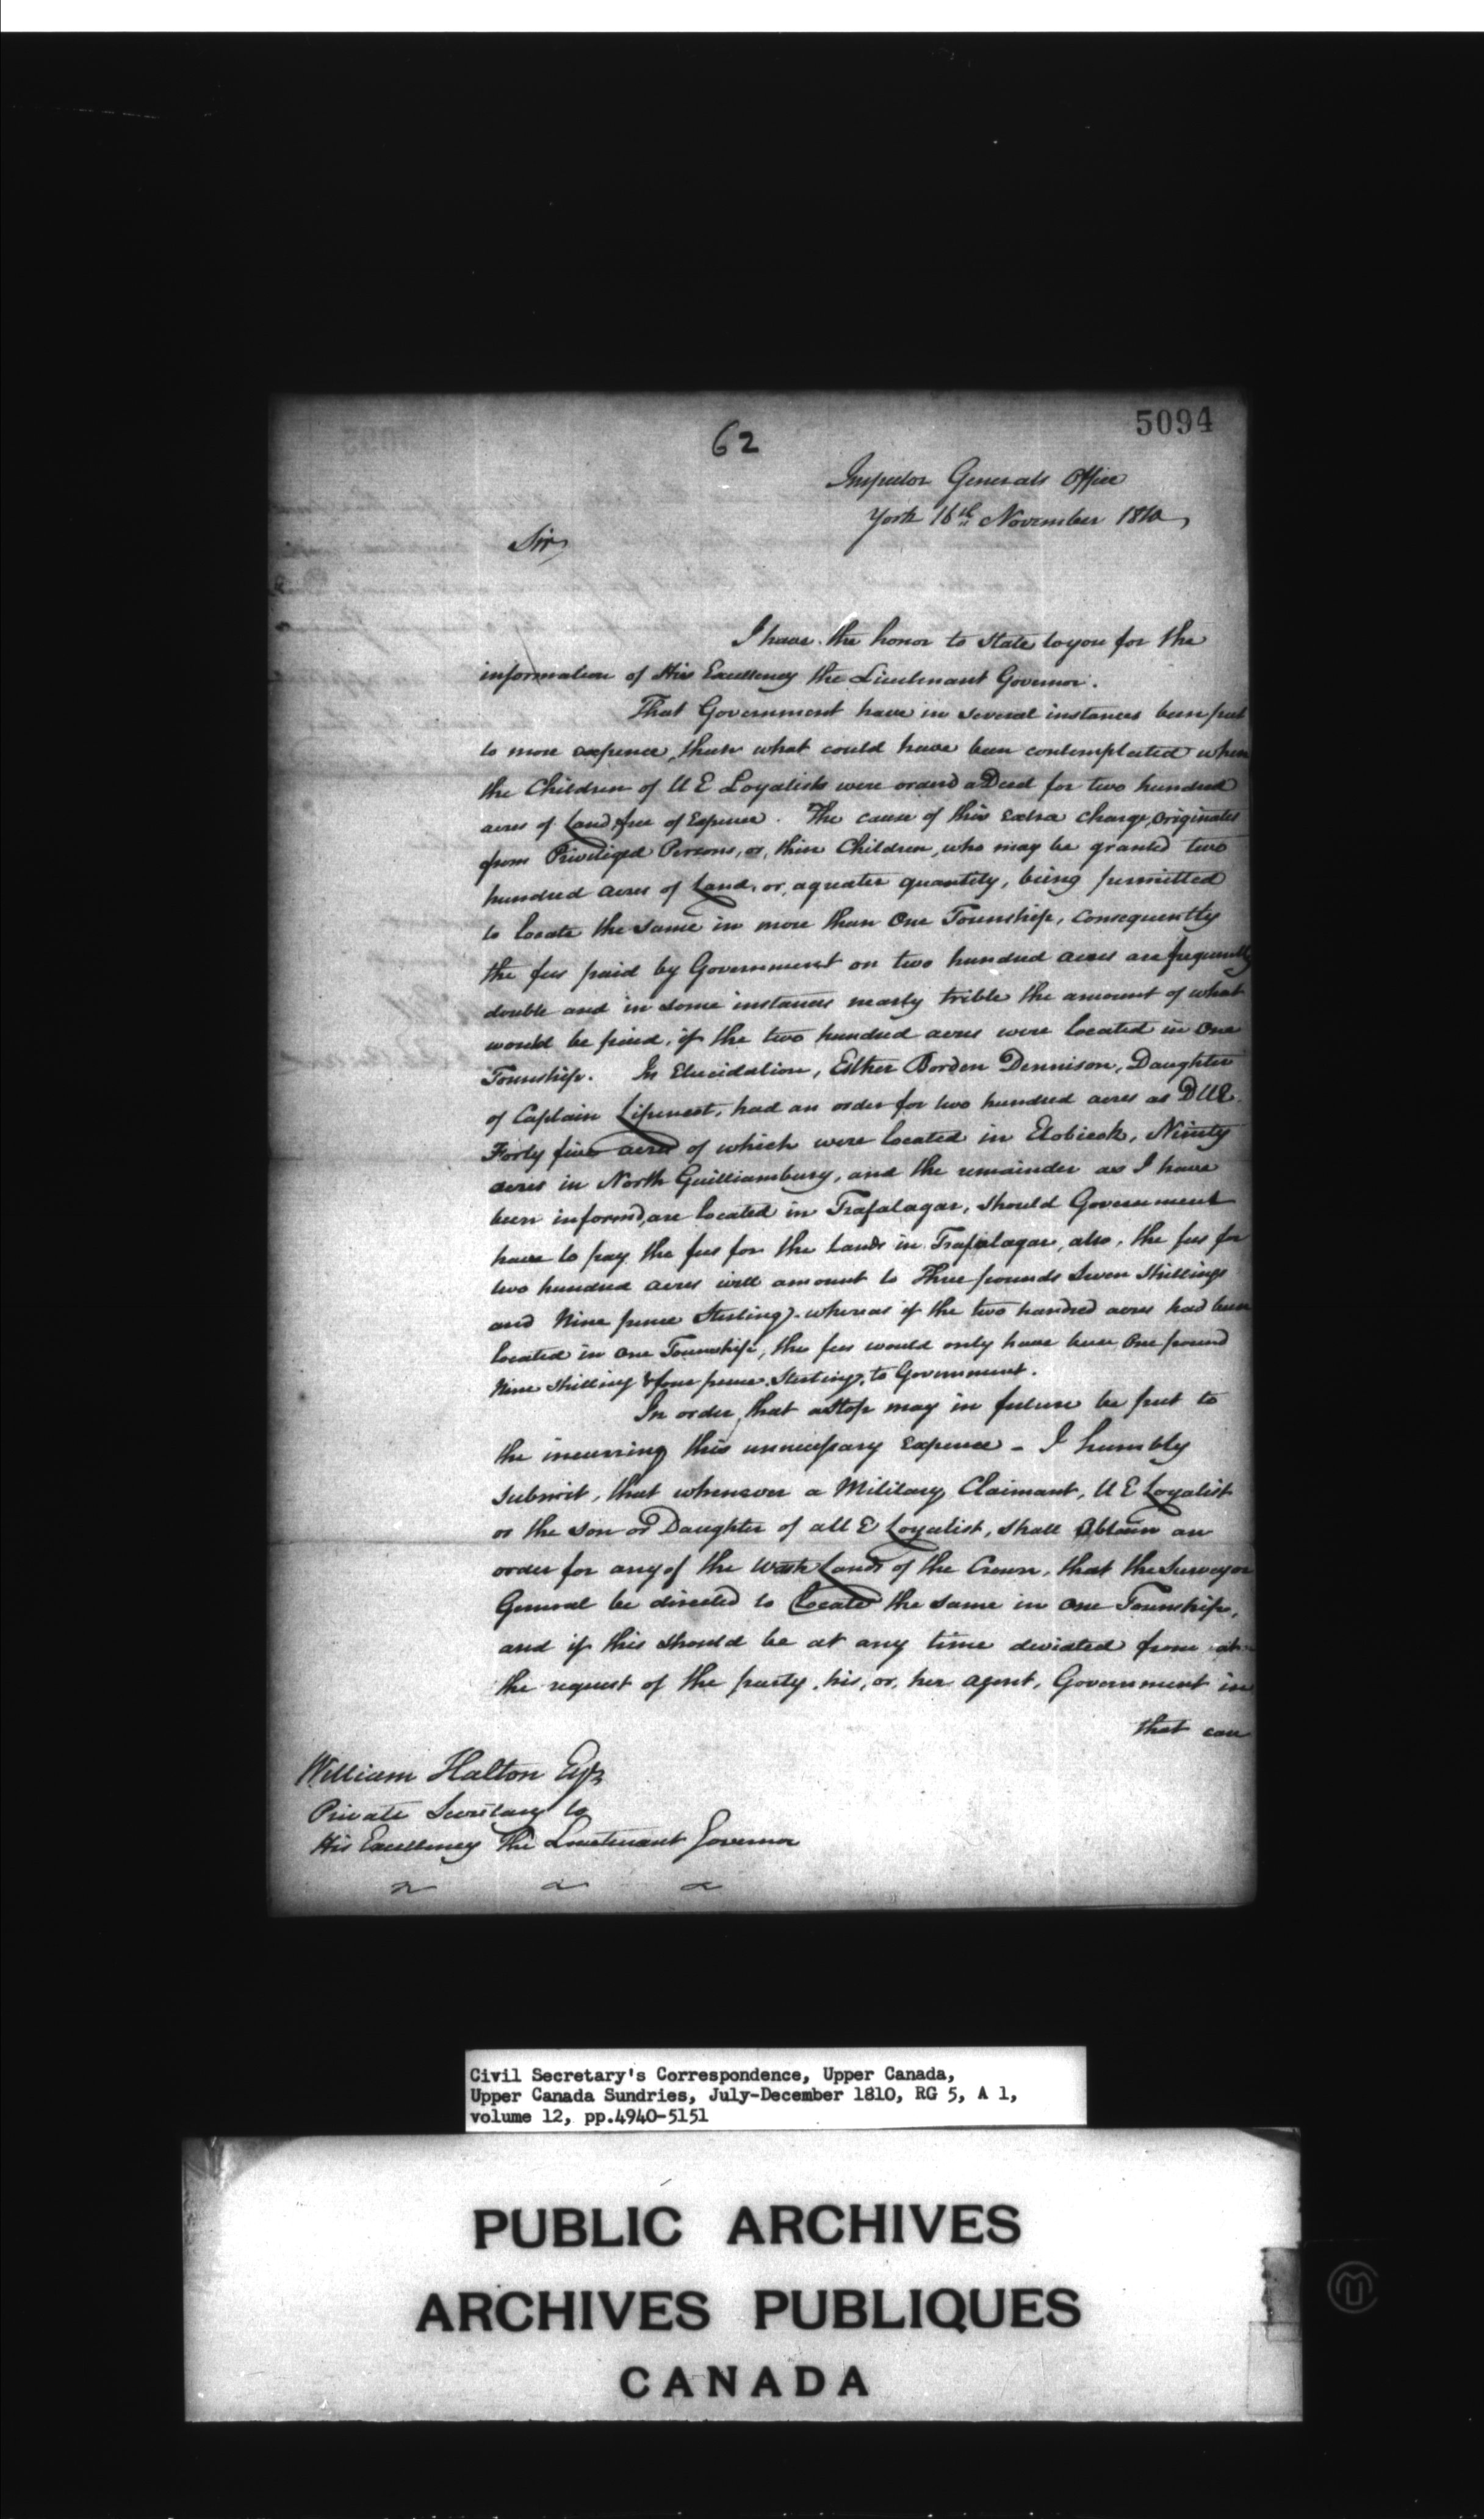 5094
62
Inspector Generals Office
York 16th November 1810,
Sir,
I have the honor to state to you for the
information of His Excellency the Lieutenant Governor.
That Government have in several instances been put
to more expence, than what could have been contemplated when
the Children of U E Loyalists were orderd a Deed for two hundred
acres of Land free of Expence. The cause of this extra charge, originates
from Priviliged Persons, or, thier Children, who may be granted two
hundred acres of Land, or, a greater quantity, being permitted
to locate the same in more than One Township, Consequently
the fees paid by Government on two hundred acres are frequently
double and in some instances nearly trible the amount of what
would be paid, if the two hundred acres were located in One
Township. In Elucidation, Esther Borden Dennison, Daughter
of Captain Lipincot, had an order for two hundred acres as D U E.
Forty five acres of which were located in Etobicok, Ninety
acres in North Guilliambury, and the remainder as I have
been informd, are located in Trafalagar, should Government
have to pay the fees for the Lands in Trafalagar, also, the fees for
two hundred acres will amount to Three pounds Seven Shillings
and Nine pence Sterling, whereas if the two handred acres had been
located in One Township, the fees would only have been One pound
Nine Shilling & four pence Sterling, to Government.
In order, that a Stop may in future be put to
the incurring this unnecessary Expence - I humbly
submit, that whenever a Military Claimant, U E Loyalist
or the son or Daughter of a U E Loyalist, shall Obtain an
order for any of the Waste Lands of the Crown, that the Surveyor
General be directed to Locate the same in One Township,
and if this should be at any time deviated from at
the request of the party, his, or, her Agent, Government in
that case
William Halton Esqr
Private Secretary to
His Excellency The Lieutenant Governor
Civil Secretary's Correspondence, Upper Canada,
Upper Canada Sundries, July-December 1810, RG 5, A 1,
volume 12, pp.4940-5151
PUBLIC ARCHIVES
ARCHIVES PUBLIQUES
CANADA